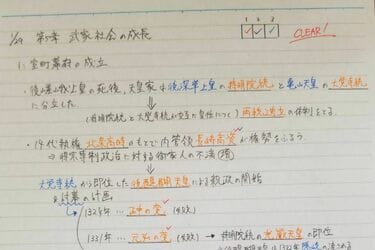 1/29 第5章 武家社会の成長
1 2 3
CLEAR!
1. 室町幕府の成立
・後嵯峨上皇の死後、天皇家は後深草上皇の持明院統と亀山天皇の大覚寺統
に分立した
(持明院統と大覚寺統が交互に皇位につく) 両統迭立の体制をとる。
・14代執権 北条高時のもとで内管領長崎高資が権勢をふるう。
⇒ 得宗専制政治に対する御家人の不満(増)
大覚寺統から即位した後醍醐天皇による親政の開始
討幕の計画
1324年… 正中の変 (失敗)
1331年… 元弘の変 (失敗) → 持明院統の光厳天皇の即位